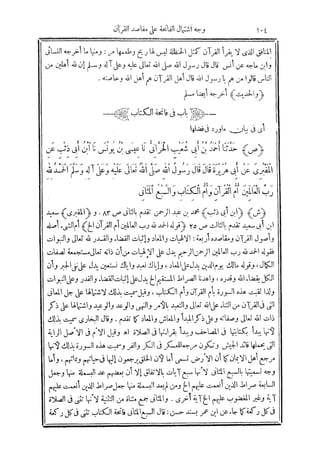 ١٠٤ وجه اشتمال الفاتحة على مقاصد القرآن
المنافق الذى لا يقرأ القرآن كمثل الحنظلة ليس لها ريح وطعمها مر: ومنها ما أخرجه النسائى
وابن ماجه عن أنس قال قال رسول الله صلى الله تعالى عليه وعلى آله وسلم إن لله أهلين من
الناس قالوا من هم يا رسول الله قال أهل القرآن هم أهل الله وخاصته.
﴿والحديث﴾ أخرجه أيضا مسلم
باب فى فاتحة الكتاب
أى فى بيان ماورد فى فضلها
﴿ص﴾ حَدَّثَنَا أَحْمَدُ بْنُ أَبِى شُعَيْبٍ الْحَرَّانِىُّ نَا عِيسَى بْنُ يُونُسَ نَا ابْنُ أَبِى ذِئْبٍ عَنِ
الْمَقْبُرِىِّ عَنْ أَبِى هُرَيْرَةَ قَالَ قَالَ رَسُولُ اللهِ صَلَّى اللهُ تَعَالَى عَلَيْهِ وَعَلَى آلِهِ وَسَلَّمَ الْحَمْدُ للهِ
رَبِّ الْعَالَمِينَ أُمُّ الْقُرْآنِ وَأُمُّ الْكِتَابِ وَالسَّبْعُ الْمَثَانِى
﴿ش﴾ ﴿ابن أبى ذئب﴾ محمد بن عبد الرحمن تقدم بالثانى ص ٨٣. و ﴿المقبرى﴾ سعيد
ابن أبى سعيد تقدم بالثالث ص ٢٥ ﴿قوله الحمد لله رب العالمين أم القرآن الخ﴾ أم الشىء أصله
وأصول القرآن ومقاصده أربعة: الالهيات والمعاد وإثبات القضاء والقدر لله تعالى والنبوات
فقوله الحمد لله رب العالمين الرحمن الرحيم يدل على الالهيات من أن ذاته تعالى مستجمعة لصفات
الكمال، وقوله مالك يوم الدين يدل على المعاد، وإياك نعبد وإياك نستعين يدل على نفى الجبر وأن
الكل بقضاء الله وقدره، واهدنا الصراط المستقيم الخ يدل على إثبات القضاء والقدر وعلى النبوات
لذا لقبت هذه السورة بأم القرآن وأم الكتاب. وقيل سميت بذلك لاشتمالها على جمل المعانى
التى فى القرآن من الثناء على الله تعالى والتعبد بالأمر والنهى والوعد والوعيد واشتمالها على ذكر
ذات الله تعالى وصفاته وعلى ذكر المبدأ والمعاش والمعاد كما تقدم. وقال البخارى سميت بذلك
لأنها يبدأ بكتابتها فى المصاحف ويبدأ بقراءتها فى الصلاة اه وقيل الأم فى الأصل الراية
التى يحملها قائد الجيش وتكون مرجعا للعسكر فى الكر والفر وسميت هذه السورة بذلك لأنها
مرجع أهل الايمان كما أن الأرض تسمى أما لأن الخلائق يرجعون إليها فى حياتهم ومماتهم. وأما
وجه تسميتها بالسبع المثانى لأنها سبع آيات بالاتفاق إلا أن بعضهم عد البسملة منها وجعل
السابعة صراط الذين أنعمت عليهم الخ ومن لم يعد البسملة منها جعل صراط الذين أنعمت عليهم
آية وغير المغضوب عليهم الخ آية أخرى. والمثانى جمع مثناة من التثنية لأنها تثنى فى الصلاة
فى كل ركعة كما جاء عن ابن عمر بسند حسن: قال السبع المثانى فاتحة الكتاب تثنى فى كل ركعة